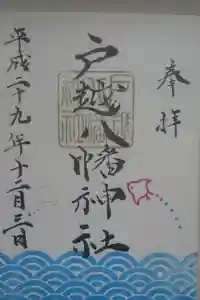 奉拝
戸越八幡神社
平成二十九年十二月三日